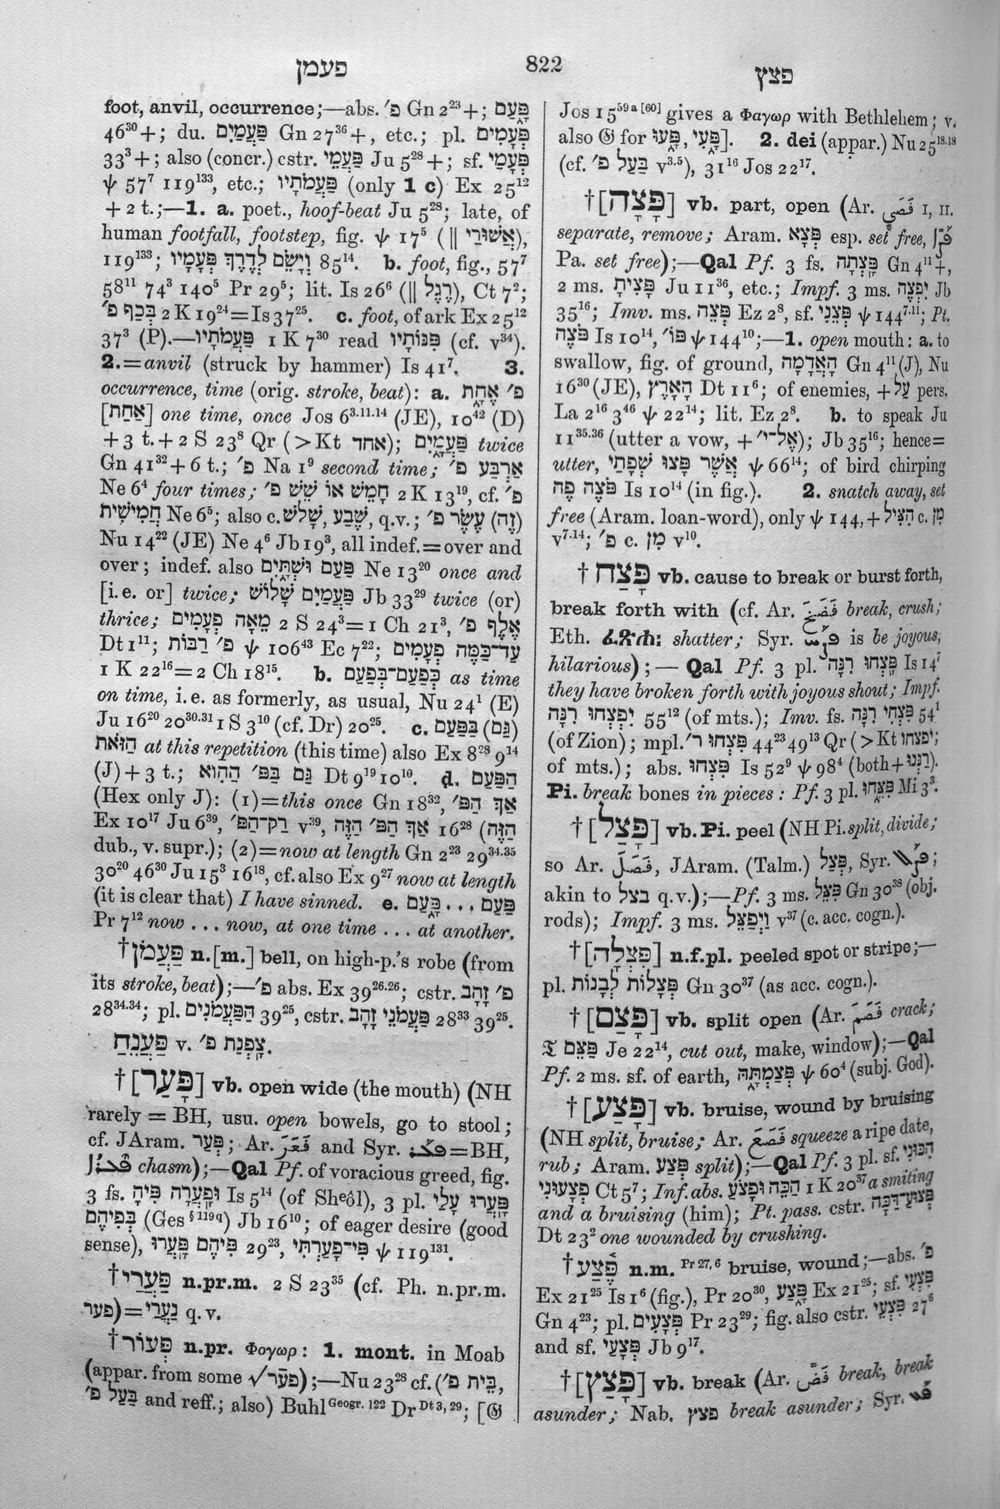 פעמן
822
פצץ
foot, anvil, occurrence;—abs. פ׳ Gn 2²³+; פָּ֑עַם
46³⁰+; du. פַּעֲמַיִם Gn 27³⁶+, etc.; pl. פְּעָמִים
33³+; also (concr.) cstr. פַּעֲמֵי Ju 5²⁸+; sf. פְּעָמַי
ψ 57⁷ 119¹³³, etc.; פַּעֲמֹתָיו (only 1 c) Ex 25¹²
+2 t.;—1. a. poet., hoof-beat Ju 5²⁸; late, of
human footfall, footstep, fig. ψ 17⁵ (‖ אֲשׁוּרַי),
119¹³³; וְיָשֵׂם לְדֶרֶךְ פְּעָמָיו 85¹⁴. b. foot, fig., 57⁷
58¹¹ 74³ 140⁵ Pr 29⁵; lit. Is 26⁶ (‖ רֶגֶל), Ct 7²;
בְּכַף פ׳ 2 K 19²⁴=Is 37²⁵. c. foot, of ark Ex 25¹²
37³ (P).—פַּעֲמֹתָיו 1 K 7³⁰ read פִּנּוֹתָיו (cf. v³⁴).
2.=anvil (struck by hammer) Is 41⁷. 3.
occurrence, time (orig. stroke, beat): a. פ׳ אֶחָת
[אַחַת] one time, once Jos 6³·¹¹·¹⁴ (JE), 10⁴² (D)
+3 t.+2 S 23⁸ Qr (>Kt אחד); פַּעֲמַיִם twice
Gn 41³²+6 t.; פ׳ Na 1⁹ second time; אַרְבַּע פ׳
Ne 6⁴ four times; חָמֵשׁ אוֹ שֵׁשׁ פ׳ 2 K 13¹⁹, cf. פ׳
חֲמִישִׁית Ne 6⁵; also c. שֶׁבַע, שָׁלֹשׁ, q.v.; (זֶה) עֶשֶׂר פ׳
Nu 14²² (JE) Ne 4⁶ Jb 19³, all indef.=over and
over; indef. also פַּעַם וּשְׁתַּיִם Ne 13²⁰ once and
[i.e. or] twice; פַּעֲמַיִם שָׁלוֹשׁ Jb 33²⁹ twice (or)
thrice; מֵאָה פְעָמִים 2 S 24³=1 Ch 21³, אֶלֶף פ׳
Dt 1¹¹; פ׳ רַבּוֹת ψ 106⁴³ Ec 7²²; עַד־כַּמֶּה פְעָמִים
1 K 22¹⁶=2 Ch 18¹⁵. b. כְּפַעַם־בְּפַעַם as time
on time, i.e. as formerly, as usual, Nu 24¹ (E)
Ju 16²⁰ 20³⁰·³¹ 1 S 3¹⁰ (cf. Dr) 20²⁵. c. (גַּם) בַּפַּעַם
הַזֹּאת at this repetition (this time) also Ex 8²⁸ 9¹⁴
(J)+3 t.; גַּם בַּפּ׳ הַהִוא Dt 9¹⁹ 10¹⁰. d. הַפַּעַם
(Hex only J): (1)=this once Gn 18³², אַךְ הַפּ׳
Ex 10¹⁷ Ju 6³⁹, רַק־הַפּ׳ v³⁹, אַךְ הַפּ׳ הַזֶּה 16²⁸ (הַזֶּה
dub., v. supr.); (2)=now at length Gn 2²³ 29³⁴·³⁵
30²⁰ 46³⁰ Ju 15³ 16¹⁸, cf. also Ex 9²⁷ now at length
(it is clear that) I have sinned. e. פַּעַם . . . פָּ֑עַם
Pr 7¹² now . . . now, at one time . . . at another.
†פַּעֲמֹן n.[m.] bell, on high-p.'s robe (from
its stroke, beat);—פ׳ abs. Ex 39²⁶·²⁶; cstr. פ׳ זָהָב
28³⁴·³⁴; pl. הַפַּעֲמֹנִים 39²⁵, cstr. פַּעֲמֹנֵי זָהָב 28³³ 39²⁵.
פַּעְנֵחַ v. צָפְנַת פ׳.
†[פָּעַר] vb. open wide (the mouth) (NH
rarely = BH, usu. open bowels, go to stool;
cf. JAram. פְּעַר; Ar. فَغَرَ and Syr. ܦܥܪ=BH,
chasm);—Qal Pf. of voracious greed, fig.
3 fs. וּפָעֲרָה פִיהָ Is 5¹⁴ (of Sheʾôl), 3 pl. פָּעֲרוּ עָלַי
בְּפִיהֶם (Ges § 119 q) Jb 16¹⁰; of eager desire (good
sense), פִּיהֶם פָּעֲרוּ 29²³, פִּי־פָעַרְתִּי ψ 119¹³¹.
†פַּעֲרַי n.pr.m. 2 S 23³⁵ (cf. Ph. n.pr.m.
פער)=נַעֲרַי q.v.
†פְּעוֹר n.pr. Φογωρ: 1. mont. in Moab
(appar. from some √פער);—Nu 23²⁸ cf. (בֵּית פ׳,
בַּעַל פ׳ and reff.; also) Buhl Geogr. 122 Dr Dt 3, 29; [𝔊
Jos 15⁵⁹ ᵃ [⁶⁰] gives a Φαγωρ with Bethlehem; v.
also 𝔊 for פָּעוּ, פָּעִי]. 2. dei (appar.) Nu 25¹⁸·¹⁸
(cf. בַּעַל פ׳ v³·⁵), 31¹⁶ Jos 22¹⁷.
†[פָּצָה] vb. part, open (Ar. فصى I, II.
separate, remove; Aram. פְּצָא esp. set free,
Pa. set free);—Qal Pf. 3 fs. פָּצְתָה Gn 4¹¹+,
2 ms. פָּצִיתָ Ju 11³⁶, etc.; Impf. 3 ms. יִפְצֶה Jb
35¹⁶; Imv. ms. פְּצֵה Ez 2⁸, sf. פְּצֵנִי ψ 144⁷·¹¹; Pt.
פֹּצֶה Is 10¹⁴, פּוֹ׳ ψ 144¹⁰;—1. open mouth: a. to
swallow, fig. of ground, הָאֲדָמָה Gn 4¹¹ (J), Nu
16³⁰ (JE), הָאָרֶץ Dt 11⁶; of enemies, + עַל pers.
La 2¹⁶ 3⁴⁶ ψ 22¹⁴; lit. Ez 2⁸. b. to speak Ju
11³⁵·³⁶ (utter a vow, + אֶל־י׳); Jb 35¹⁶; hence=
utter, אֲשֶׁר פָּצוּ שְׂפָתַי ψ 66¹⁴; of bird chirping
פֹּצֶה פֶה Is 10¹⁴ (in fig.). 2. snatch away, set
free (Aram. loan-word), only ψ 144, + הִצִּיל c. מִן
v⁷·¹⁴; פ׳ c. מִן v¹⁰.
†פָּצַח vb. cause to break or burst forth,
break forth with (cf. Ar. break, crush;
Eth. shatter; Syr. is be joyous,
hilarious);—Qal Pf. 3 pl. פָּצְחוּ רִנָּה Is 14⁷
they have broken forth with joyous shout; Impf.
יִפְצְחוּ רִנָּה 55¹² (of mts.); Imv. fs. פִּצְחִי רִנָּה 54¹
(of Zion); mpl. פִּצְחוּ ר׳ 44²³ 49¹³ Qr (>Kt יפצחו;
of mts.); abs. פִּצְחוּ Is 52⁹ ψ 98⁴ (both + רַנְּנוּ).
Pi. break bones in pieces: Pf. 3 pl. פִּצֵּ֑חוּ Mi 3³.
†[פָּצַל] vb. Pi. peel (NH Pi. split, divide;
so Ar. فَصَلَ, JAram. (Talm.) פְּצַל, Syr. ;
akin to בצל q.v.);—Pf. 3 ms. פִּצֵּל Gn 30³⁸ (obj.
rods); Impf. 3 ms. וַיְפַצֵּל v³⁷ (c. acc. cogn.).
†[פִּצְלָה] n.f.pl. peeled spot or stripe;—
pl. פְּצָלוֹת לְבָנוֹת Gn 30³⁷ (as acc. cogn.).
†[פָּצַם] vb. split open (Ar. فَصَمَ crack;
𝔗 פְּצַם Je 22¹⁴, cut out, make, window);—Qal
Pf. 2 ms. sf. of earth, פְּצַמְתָּהּ ψ 60⁴ (subj. God).
†[פָּצַע] vb. bruise, wound by bruising
(NH split, bruise; Ar. فَصَعَ squeeze a ripe date,
rub; Aram. פְּצַע split);—Qal Pf. 3 pl. sf. הִכּוּנִי
פְצָעוּנִי Ct 5⁷; Inf. abs. הַכֵּה וּפָצֹעַ 1 K 20³⁷ a smiting
and a bruising (him); Pt. pass. cstr. פְּצוּעַ־דַּכָּה
Dt 23² one wounded by crushing.
†פֶּצַע n.m. Pr 27, 6 bruise, wound;—abs. פ׳
Ex 21²⁵ Is 1⁶ (fig.), Pr 20³⁰, פָּ֑צַע Ex 21²⁵; sf. פִּצְעִי
Gn 4²³; pl. פְּצָעִים Pr 23²⁹; fig. also cstr. פִּצְעֵי 27⁶
and sf. פְּצָעַי Jb 9¹⁷.
†[פָּצַץ] vb. break (Ar. فَضَّ break, break
asunder; Nab. פצץ break asunder; Syr.